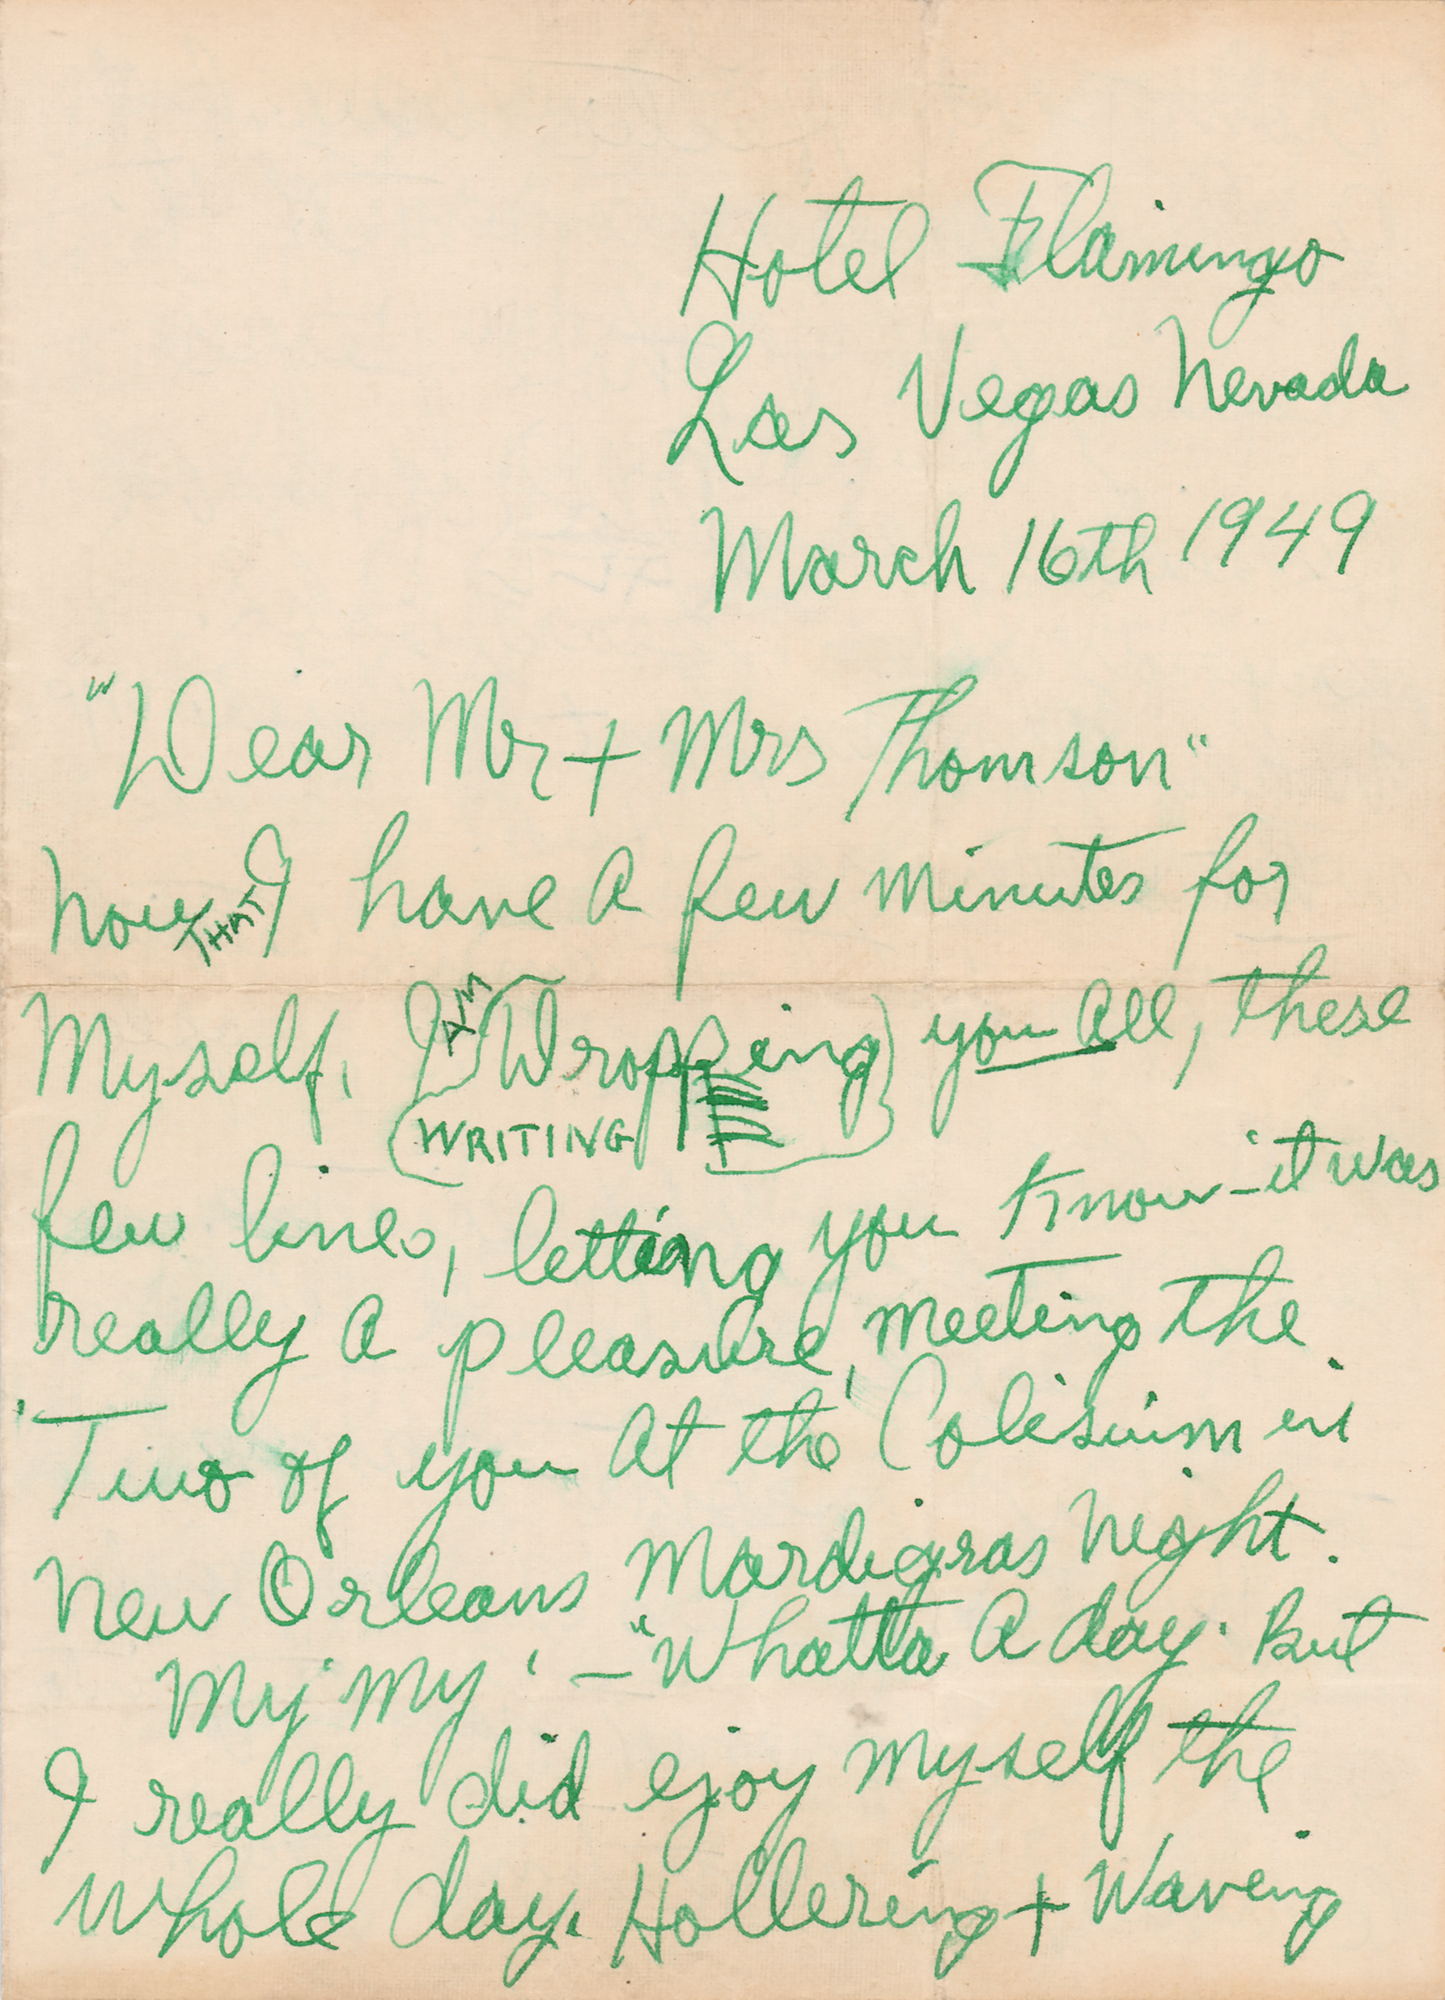 Hotel Flamingo
Las Vegas Nevada
March 16th 1949
"Dear Mr + Mrs Thomson"
Now THAT I have a few minutes for
Myself, I AM Wropping you all, these
WRITIING
few lines, letting you Know–it was
really a pleasure, meeting the
Two of you at the Coliseium in
New Orleans Mardigras Night.
My' My' –"Whatta a day. But
I really did ejoy myself the
whole day. Hollering + Waving